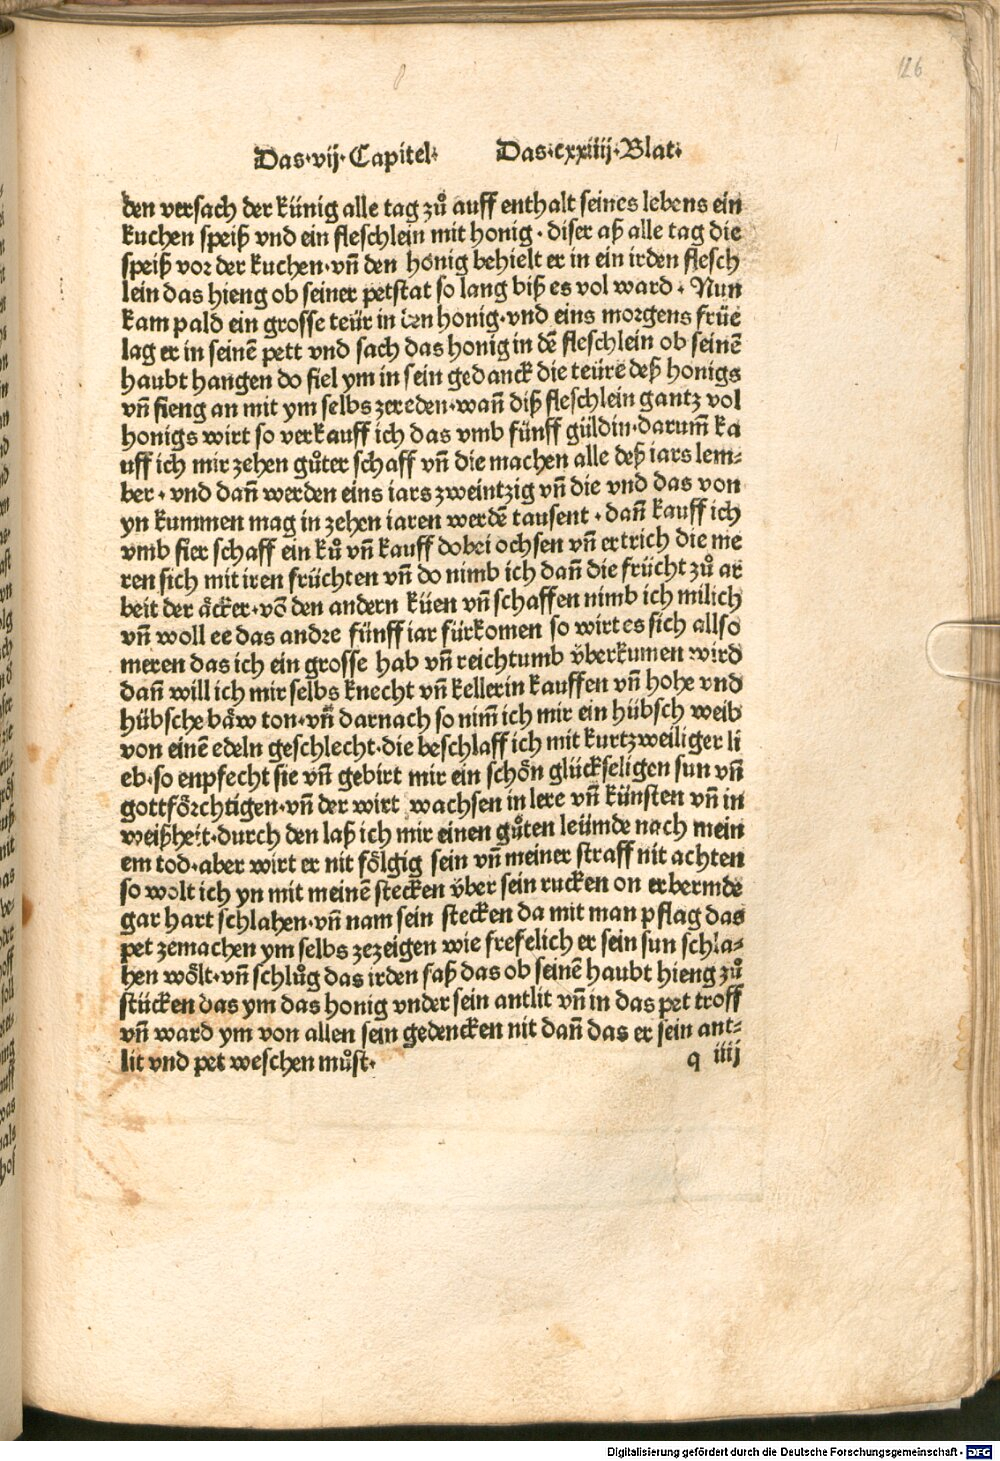 126
Das·vij·Capitel· Das·cxxiiij·Blat·
den versach der künig alle tag zů auff enthalt seines lebens ein
kuchen speiß vnd ein fleschlein mit honig · diser aß alle tag die
speiß vor der kuchen·vñ den honig behielt er in ein irden flesch
lein das hieng ob seiner petstat so lang biß es vol ward · Nun
kam pald ein grosse teür in den honig·vnd eins morgens früe
lag er in seinē pett vnd sach das honig in dē fleschlein ob seinē
haubt hangen do fiel ym in sein gedanck die teüre deß honigs
vñ fieng an mit ym selbs zereden·wañ diß fleschlein gantz vol
honigs wirt so verkauff ich das vmb fünff güldin·darum̃ ka
uff ich mir zehen gůter schaff vñ die machen alle deß iars lem⸗
ber · vnd dañ werden eins iars zweintzig vñ die vnd das von
yn kummen mag in zehen iaren werdē tausent · dañ kauff ich
vmb fier schaff ein ků vñ kauff dobei ochsen vñ ertrich die me
ren sich mit iren früchten vñ do nimb ich dañ die frücht zů ar
beit der äcker·võ den andern küen vñ schaffen nimb ich milich
vñ woll ee das andre fünff iar fürkomen so wirt es sich allso
meren das ich ein grosse hab vñ reichtumb v̈berkumen wird
dañ will ich mir selbs knecht vñ kellerin kauffen vñ hohe vnd
hübsche bäw ton·vñ darnach so nim̃ ich mir ein hübsch weib
von einē edeln geschlecht·die beschlaff ich mit kurtzweiliger li
eb·so enpfecht sie vñ gebirt mir ein schön glückseligen sun vñ
gottförchtigen·vñ der wirt wachsen in lere vñ künsten vñ in
weißheit·durch den laß ich mir einen gůten leümde nach mein
em tod·aber wirt er nit fölgig sein vñ meiner straff nit achten
so wolt ich yn mit meinē stecken v̈ber sein rucken on erbermde
gar hart schlahen·vñ nam sein stecken da mit man pflag das
pet zemachen ym selbs zezeigen wie frefelich er sein sun schla⸗
hen wölt·vñ schlůg das irden faß das ob seinē haubt hieng zů
stücken das ym das honig vnder sein antlit vñ in das pet troff
vñ ward ym von allen sein gedencken nit dañ das er sein ant⸗
lit vnd pet weschen můst·
q iiij
Digitalisierung gefördert durch die Deutsche Forschungsgemeinschaft - DFG